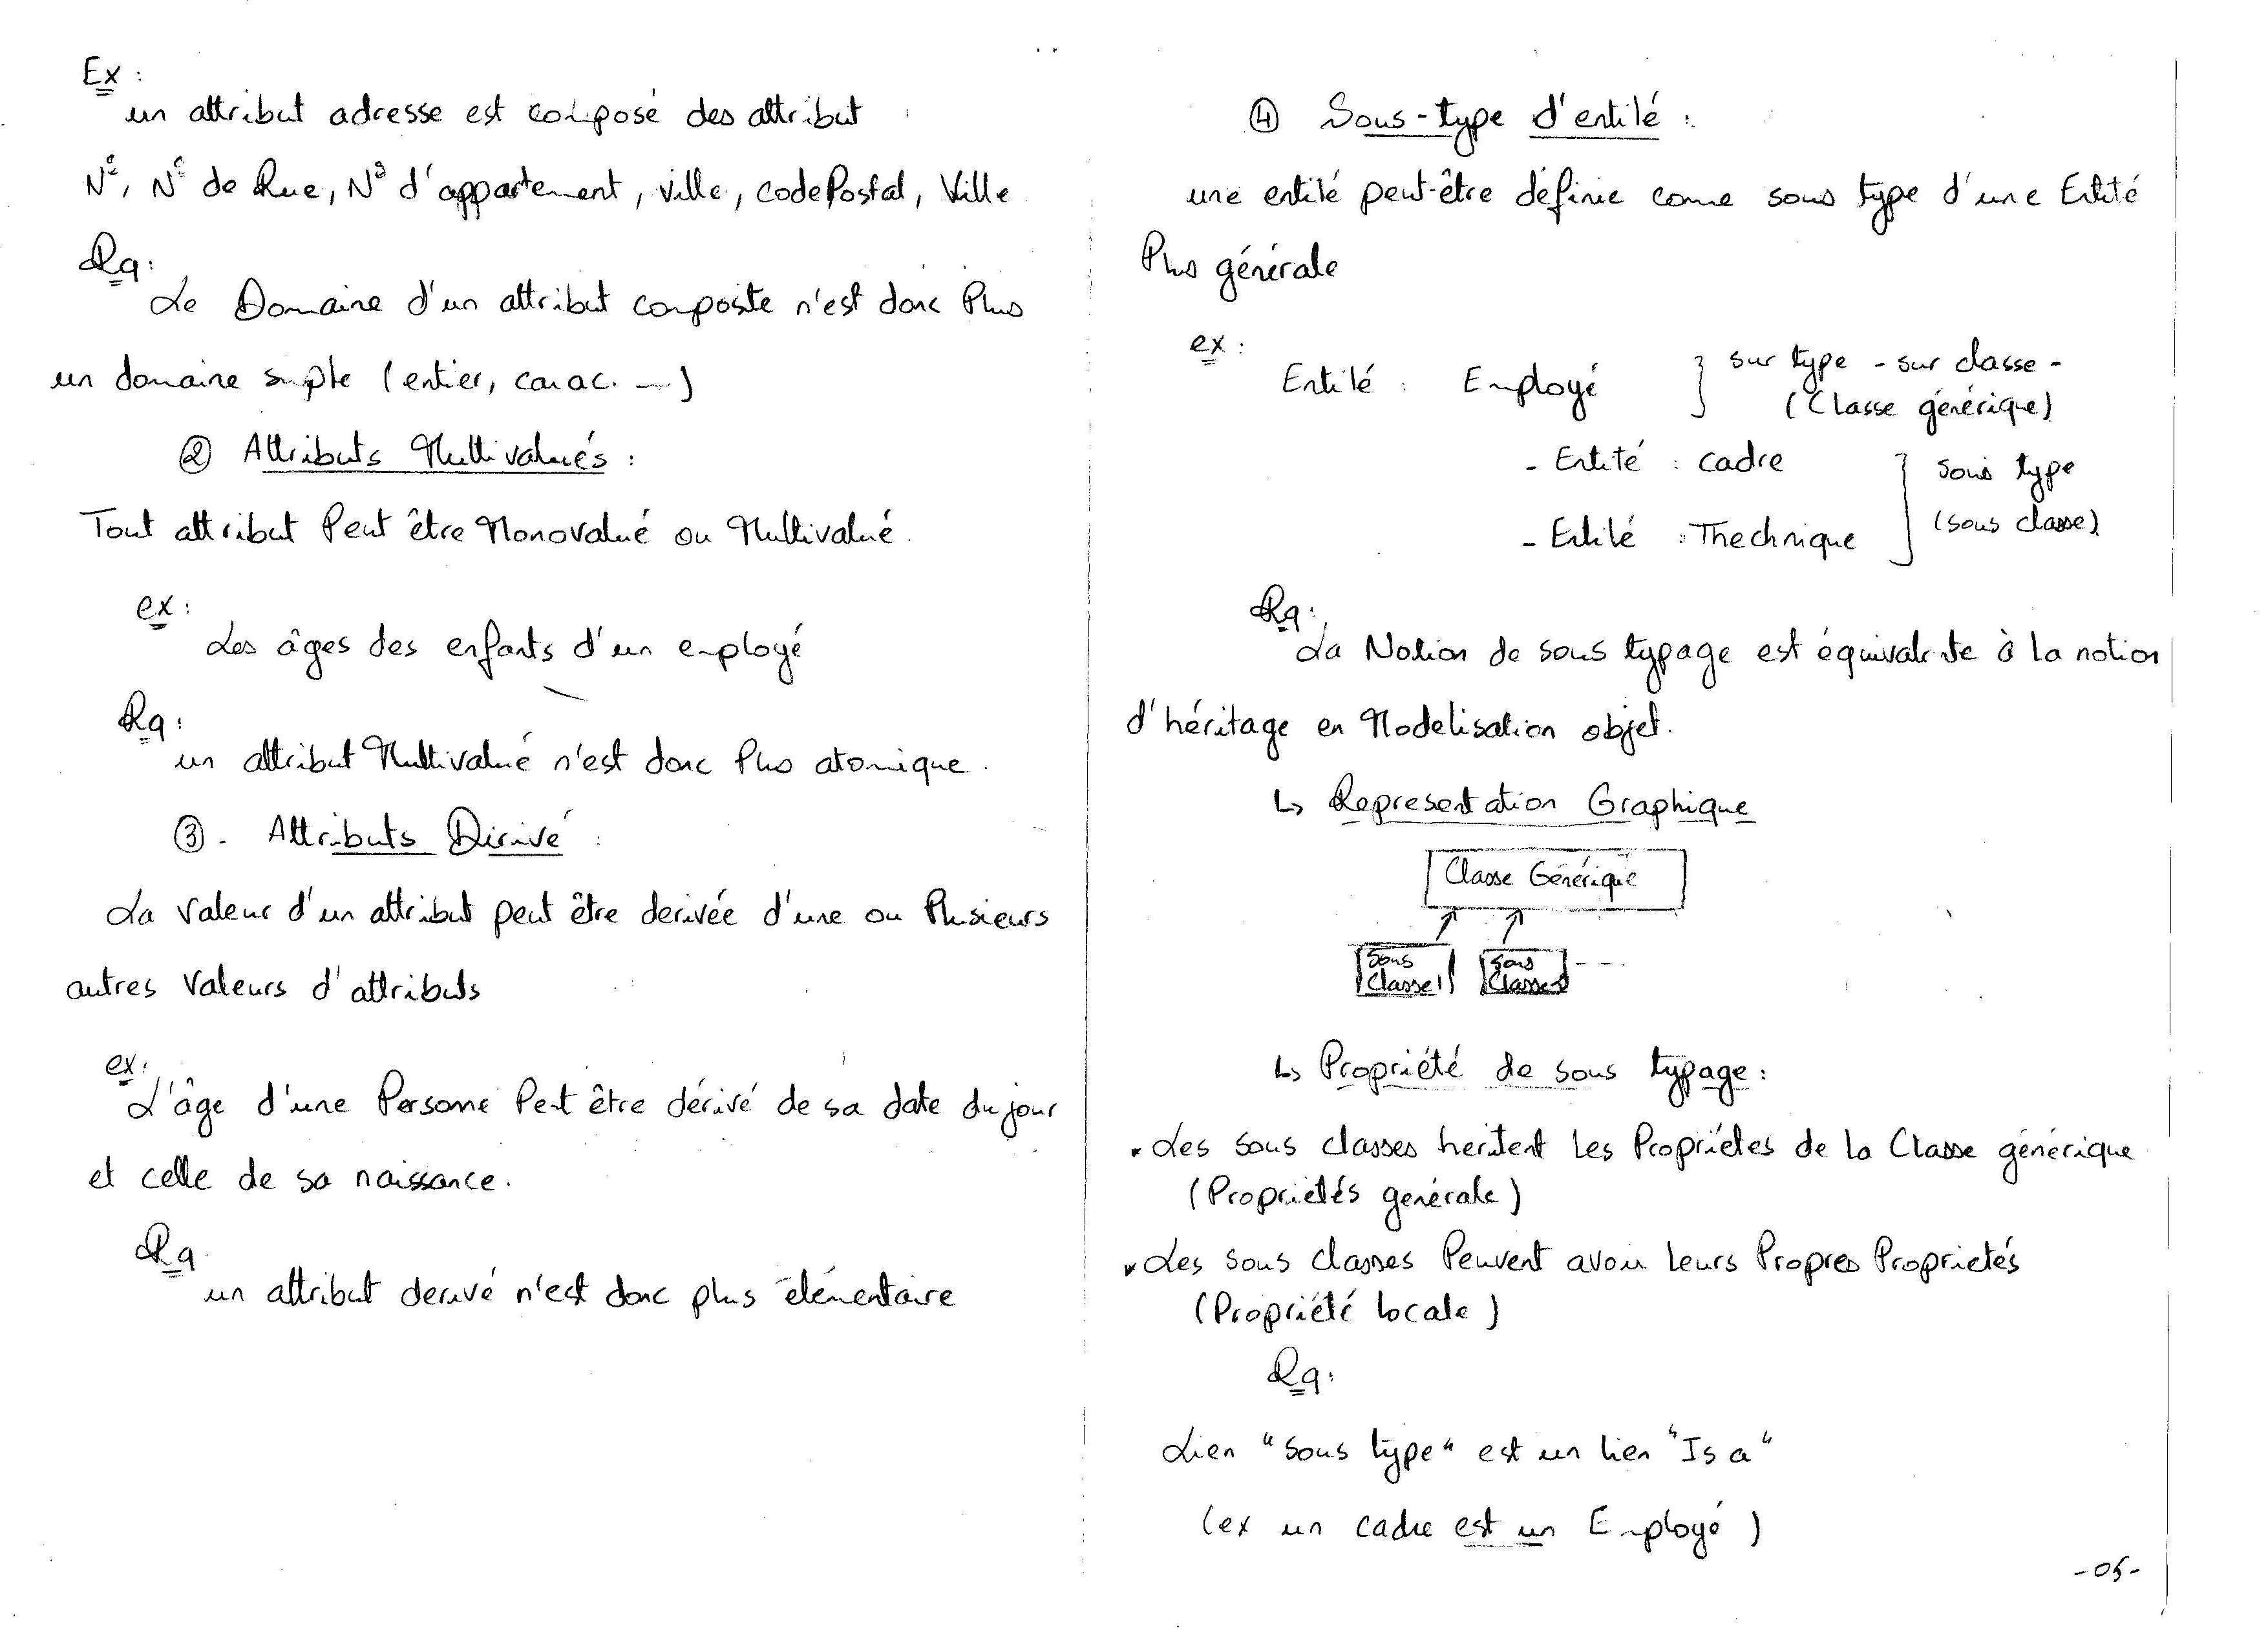 Ex :
un attribut adresse est composé des attribut
N°, N° de Rue, N° d'appartement, ville, codePostal, Ville
Rq :
Le Domaine d'un attribut composite n'est donc Plus
un domaine simple (entier, carac. —)
② Attributs Multivalués :
Tout attribut Peut être Monovalué ou Multivalué.
ex :
Les âges des enfants d'un employé
Rq :
un attribut Multivalué n'est donc Plus atomique.
③ - Attributs Dirivé :
La valeur d'un attribut peut être derivée d'une ou Plusieurs
autres Valeurs d'attributs
ex :
L'âge d'une Personne Peut être dérivé de sa date du jour
et celle de sa naissance.
Rq
un attribut derivé n'est donc plus élémentaire
④ Sous-type d'entité :
une entité peut-être définie come sous type d'une Entité
Plus générale
ex :
Entité : Employé } sur type - sur classe -
(Classe générique)
- Entité : cadre } sous type
- Entité : Thechnique (sous classe)
Rq :
La Notion de sous typage est équivalente à la notion
d'héritage en Modelisation objet.
↳ Representation Graphique
Classe Générique
Sous Classe1
Sous Classe2 ----
↳ Propriété de sous typage :
* Les sous classes heritent les Propriétes de la Classe générique
(Proprietés generale)
* Les sous classes Peuvent avoir leurs Propres Proprietés
(Propriété locale)
Rq :
Lien "sous type" est un lien "Is a"
(ex un cadre est un Employé)
- 05 -